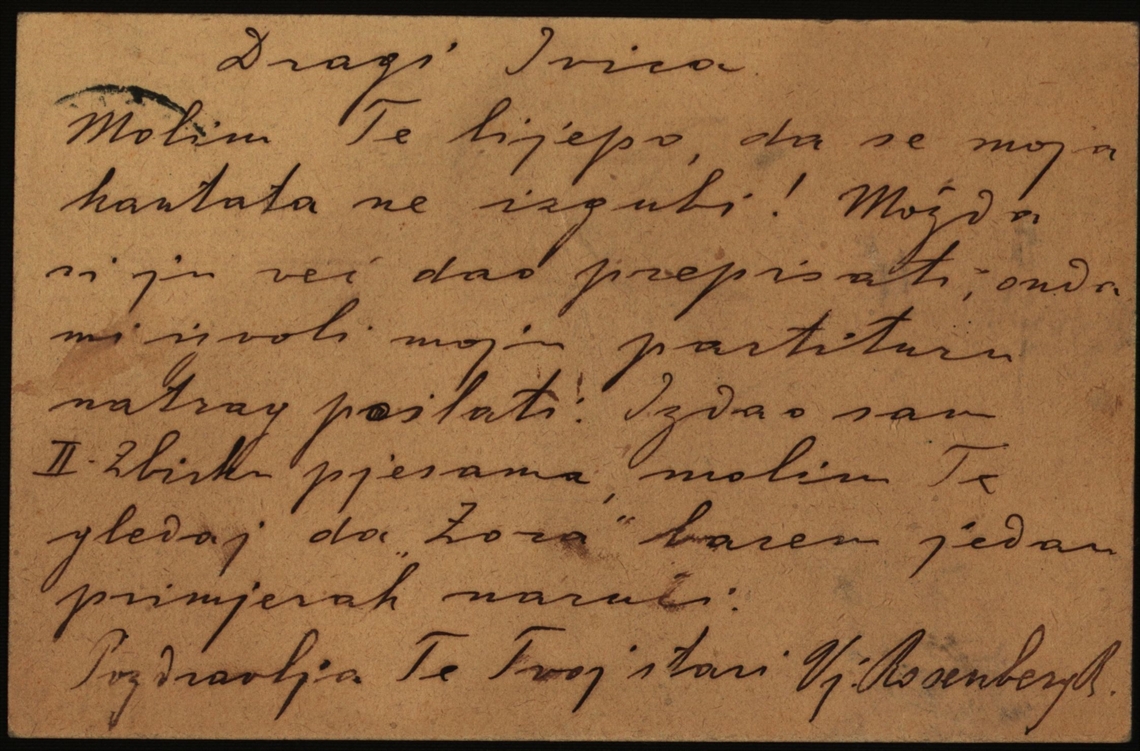 Dragi Ivica
Molim Te lijepo, da se moja
kantata ne izgubi! Možda
si ju već dao prepisati; onda
mi izvoli moju partituru
natrag poslati! Izdao sam
II. Zbirku pjesama, molim Te
gledaj da „Zora" barem jedan
primjerak naruči.
Pozdravlja Te Tvoj stari Vj. RosenbergR.